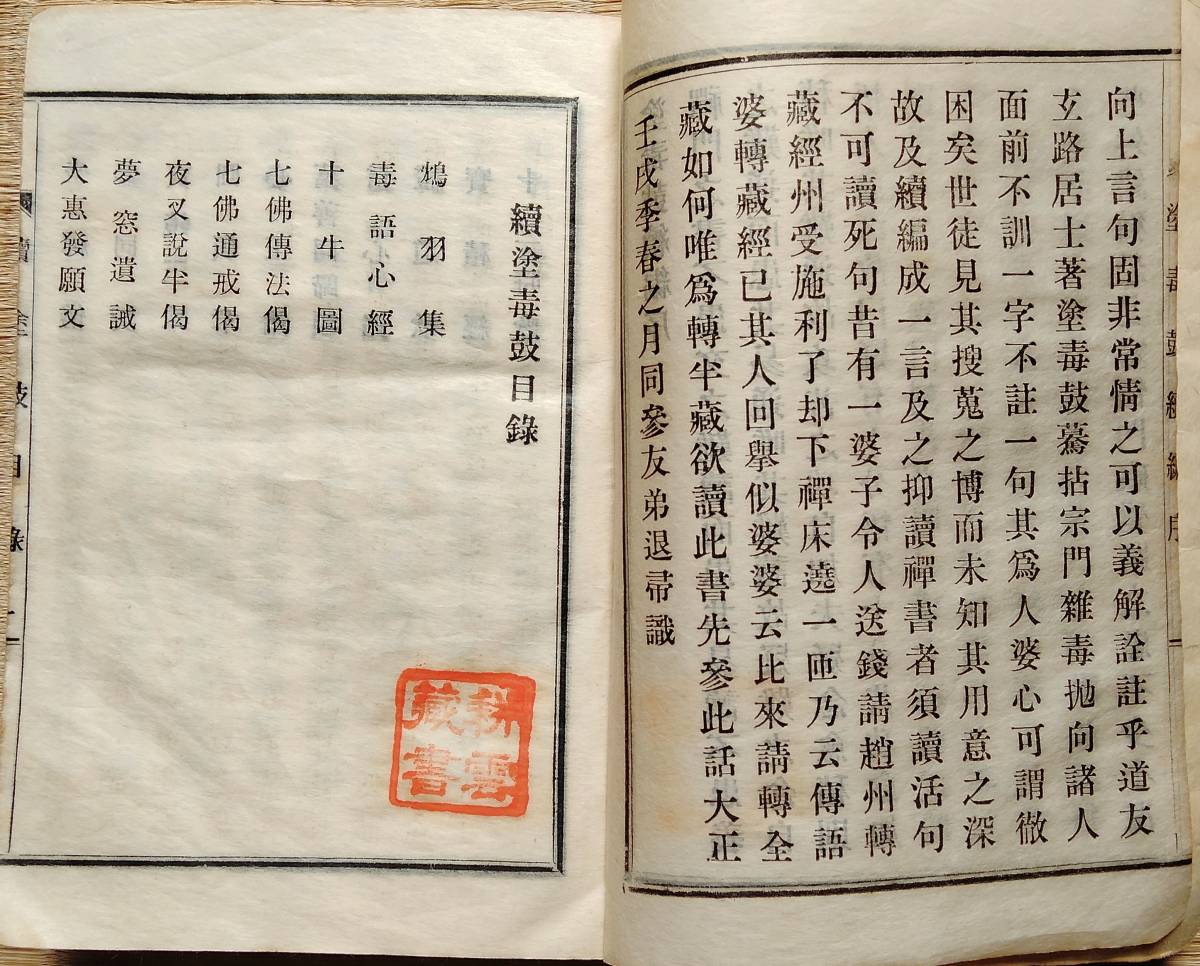 塗毒鼓續編序
向上言句固非常情之可以義解詮註乎道友
玄路居士著塗毒鼓驀拈宗門雜毒抛向諸人
面前不訓一字不註一句其爲人婆心可謂徹
困矣世徒見其搜蒐之博而未知其用意之深
故及續編成一言及之抑讀禪書者須讀活句
不可讀死句昔有一婆子令人送錢請趙州轉
藏經州受施利了却下禪床遶一匝乃云傳語
婆轉藏經已其人回擧似婆婆云比來請轉全
藏如何唯爲轉半藏欲讀此書先參此話大正
壬戌季春之月同參友弟退帚識
續塗毒鼓目錄
鴆羽集
毒語心經
十牛圖
七佛傳法偈
七佛通戒偈
夜叉說半偈
夢窓遺誡
大惠發願文
耕雲
藏書